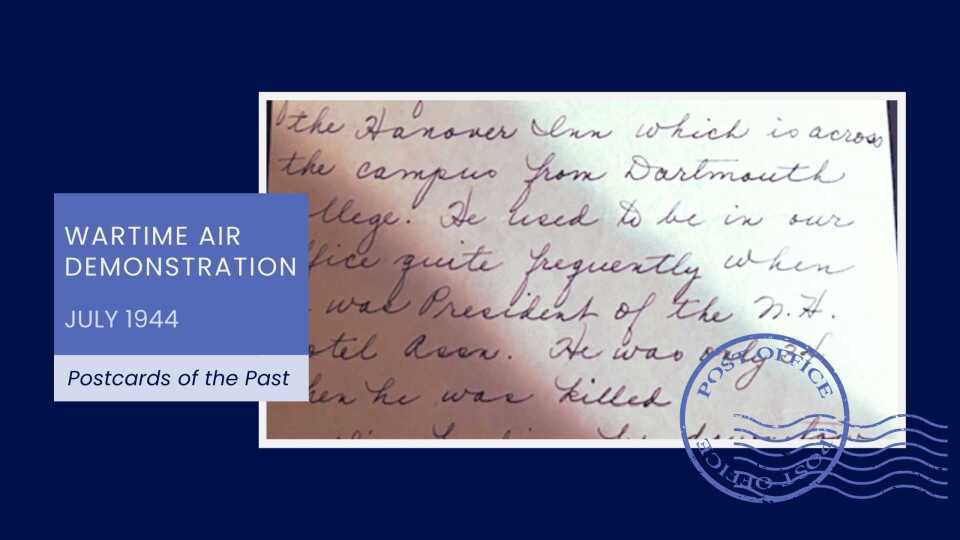 the Hanover Inn which is across
the campus from Dartmouth
llege. He used to be in our
fice quite frequently when
was President of the N.H.
otel Assn. He was only
hen he was killed
WARTIME AIR
DEMONSTRATION
JULY 1944
Postcards of the Past
POST OFFICE
POST OFFICE